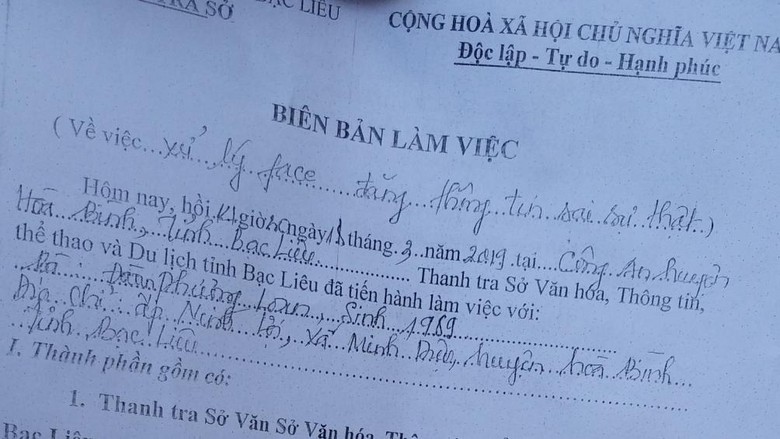 BẠC LIÊU
TRA SỞ
CỘNG HOÀ XÃ HỘI CHỦ NGHĨA VIỆT NA
Độc lập - Tự do - Hạnh phúc
BIÊN BẢN LÀM VIỆC
( Về việc...xử lý face.....đăng...thông tin sai sự thật.)
Hôm nay, hồi 14 giờ ngày tháng 3 năm 2019 tại...Công An huyện
Hòa Bình, Tỉnh Bạc Liêu Thanh tra Sở Văn hóa, Thông tin,
thể thao và Du lịch tỉnh Bạc Liêu đã tiến hành làm việc với:
Bà: Phượng Loan, Sinh 1989
Địa chỉ ấp Ninh Lợi, xã Minh Diệu, huyện Hoà Bình
tỉnh Bạc Liêu
I. Thành phần gồm có:
1. Thanh tra Sở Văn Sở Văn hóa,
Bạc Liêu